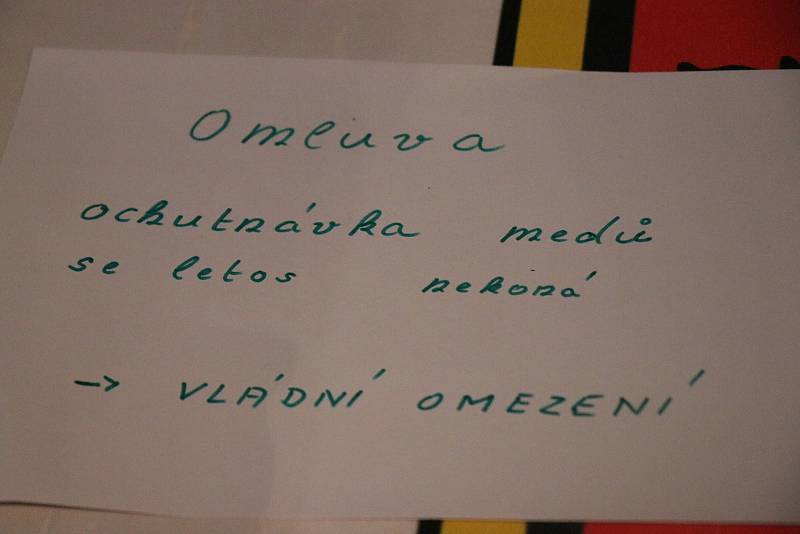 Omluva
ochutnávka medů
se letos nekoná
-> VLÁDNÍ OMEZENÍ